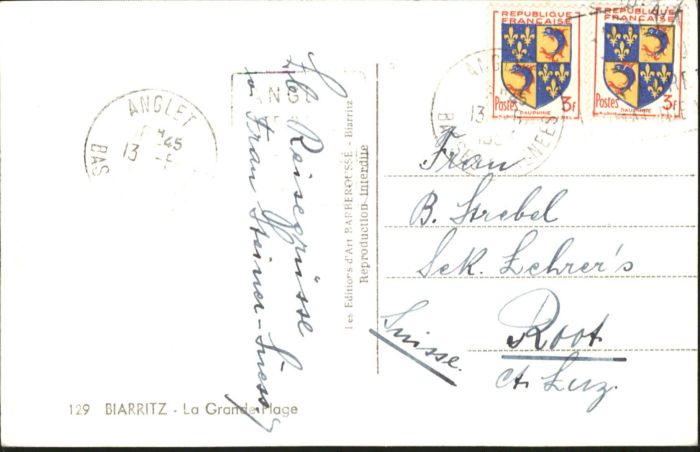 RÉPUBLIQUE FRANÇAISE
Postes 3F
DAUPHINÉ
RÉPUBLIQUE FRANÇAISE
Postes 3F
DAUPHINÉ
ANGLET
13
BAS
ANGLET
13
Hle Reisegrüsse
Frau Steiner-Suess
Les Editions d'Art BARBEROUSSE - Biarritz
Reproduction interdite
Frau
B. Strebel
Sek. Lehrer's
Root
Ct. Luz.
Suisse.
129 BIARRITZ - La Grande Plage